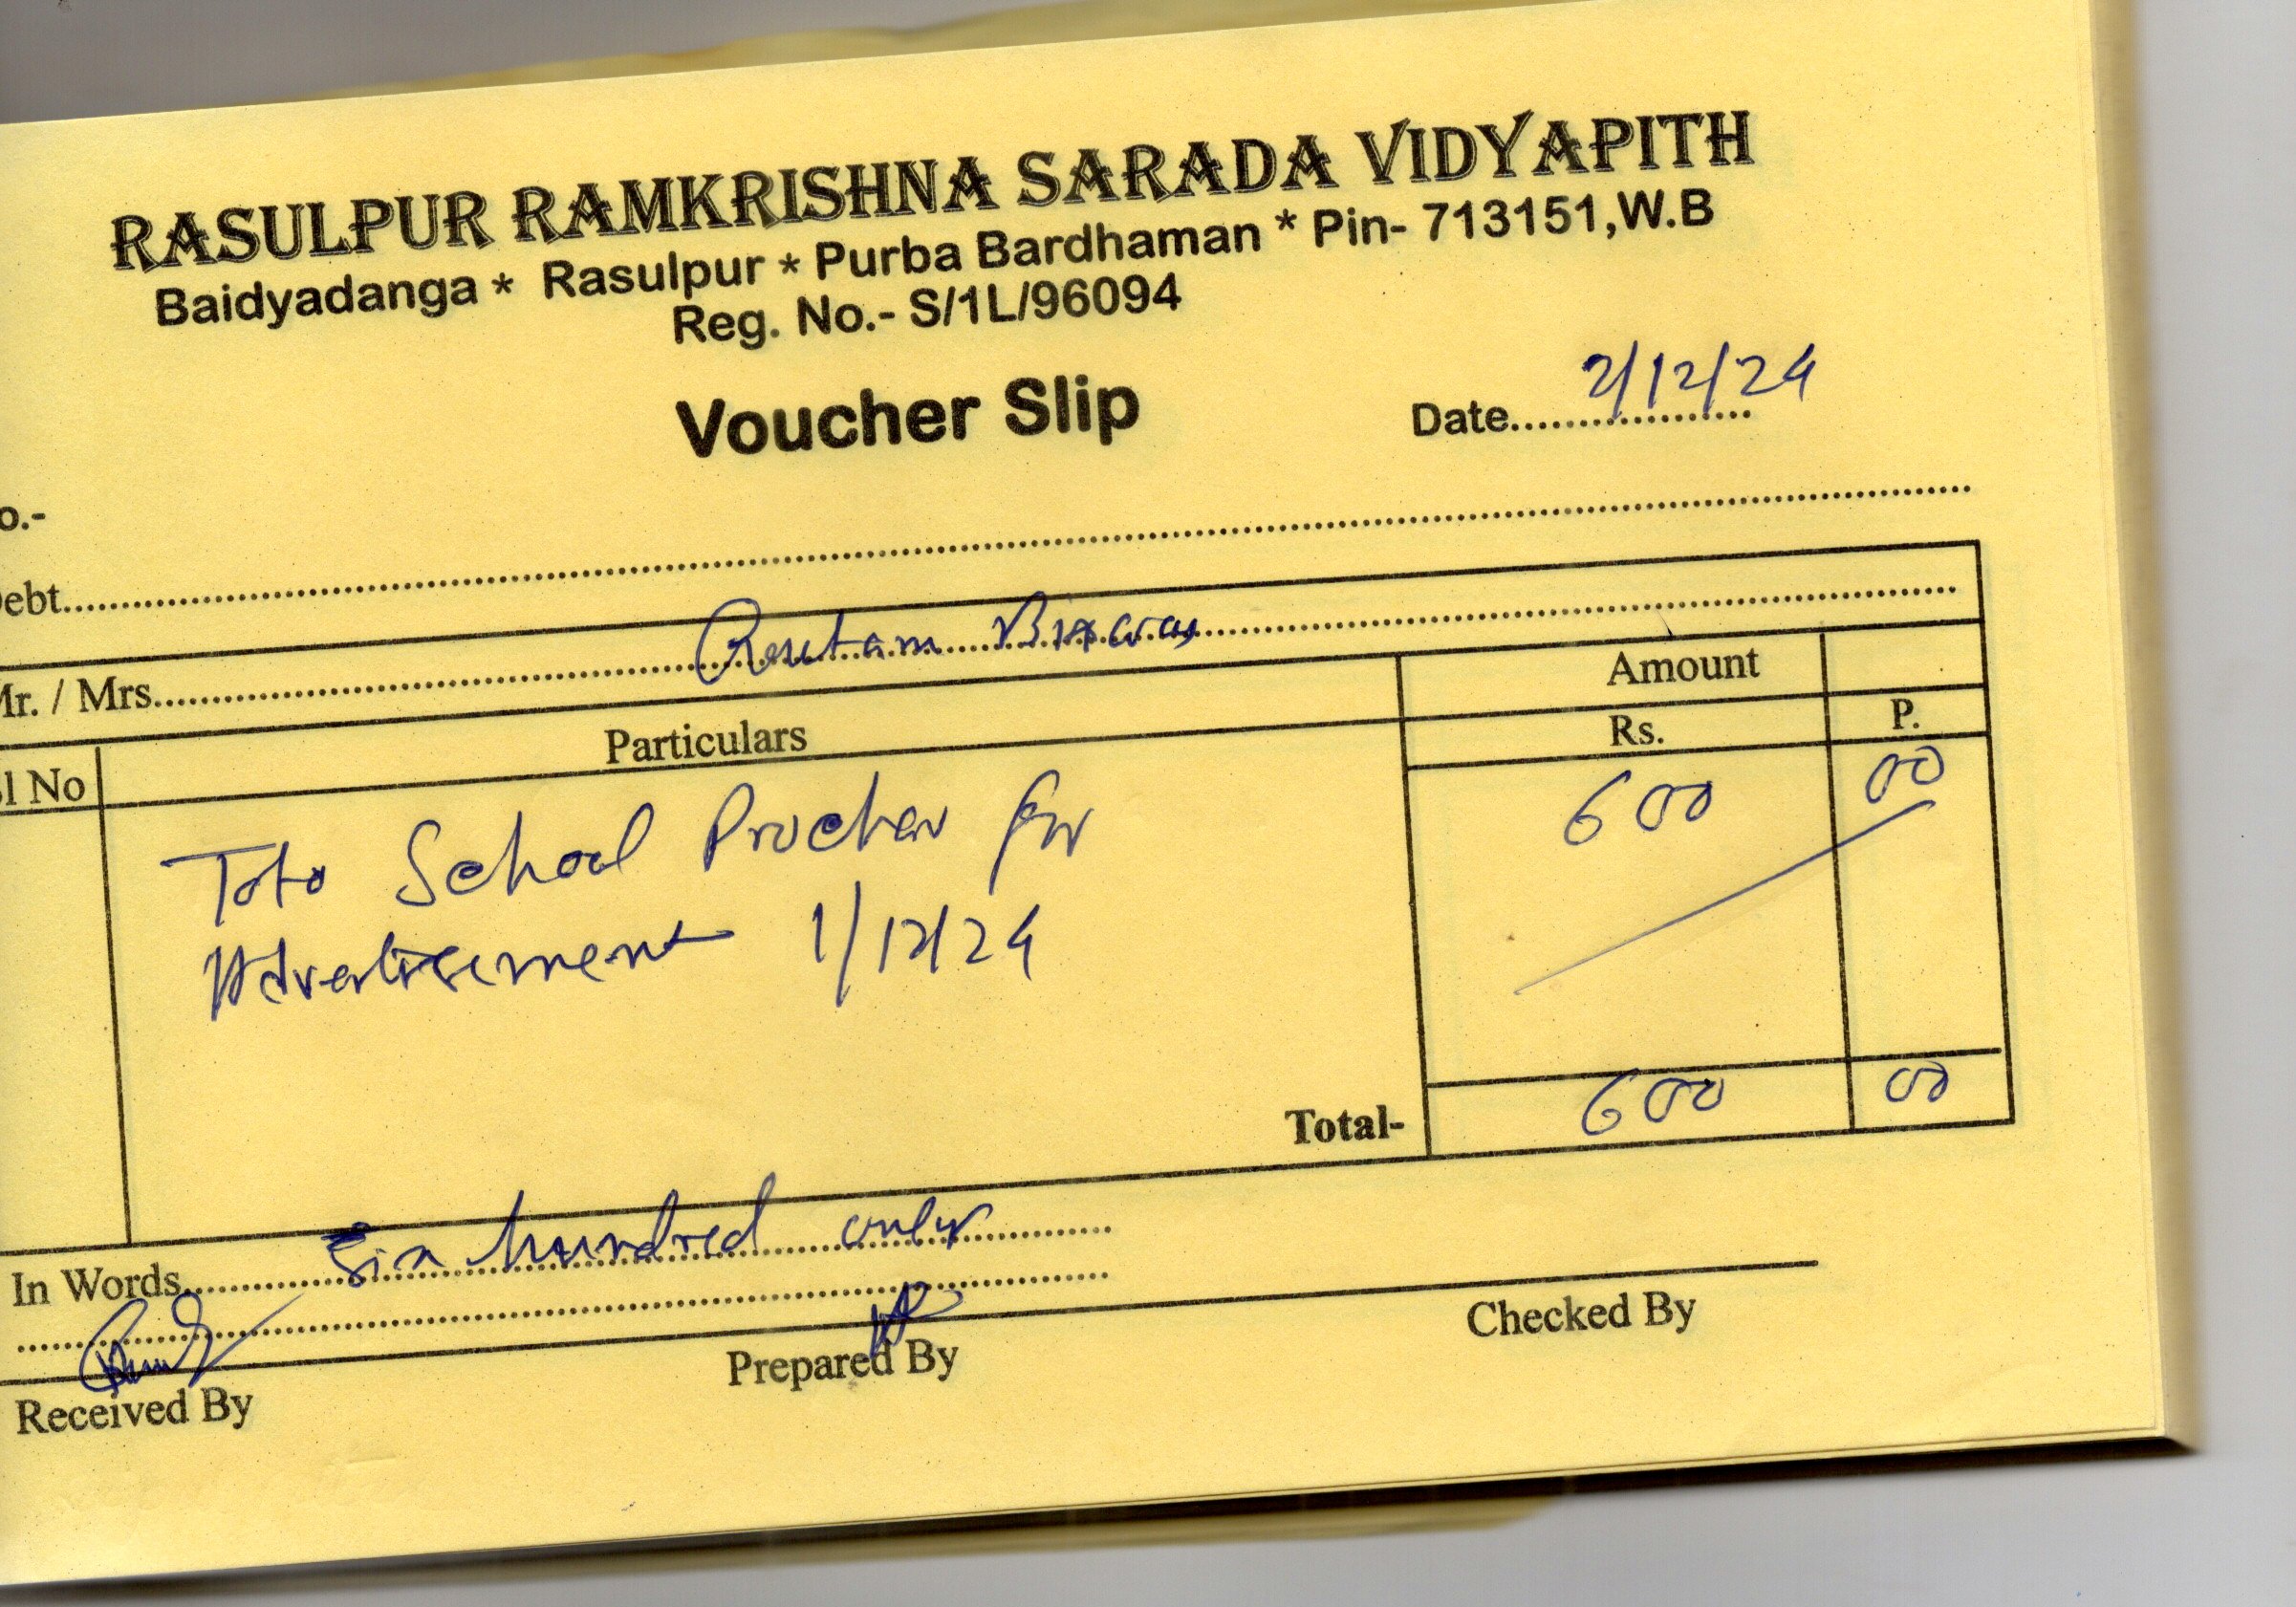 RASULPUR RAMKRISHNA SARADA VIDYAPITH
Baidyadanga * Rasulpur * Purba Bardhaman * Pin- 713151,W.B
Reg. No.- S/1L/96094
Voucher Slip
Date 2/12/24
o.-
ebt
Mr. / Mrs. Biswas
Sl No Particulars Amount
Rs. P.
Toto School Prochar for 600 00
Advertisement 1/12/24
Total- 600 00
In Words Six hundred only
Received By Prepared By Checked By